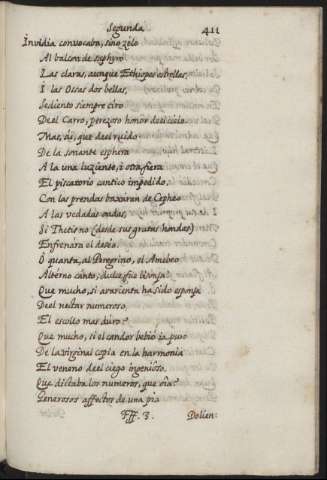 Segunda 411
Invidia convocaba, sino zelo
Al balcon de saphyro
Las claras, aunque Ethiopes estrellas,
I las Ossas dos bellas,
Sediento siempre tiro
De el Carro, perezoso honor de el cielo.
Mas, ai, que de el ruido
De la sonante esphera
A la una luziente, i otra fiera
El piscatorio cantico impedido,
Con las prendas baxaran de Cepheo
A las vedadas ondas,
Si Thetis no (desde sus grutas hondas)
Enfrenara el deseo.
O quanta, al Peregrino, el Amebeo
Alterno canto, dulce fue lisonja
Que mucho, si avarienta ha sido esponja
De el nectar numeroso
El escollo mas duro?
Que mucho, si el candor bebio ia puro
De la virginal copia en la harmonia
El veneno de el ciego ingenioso,
Que dictaba los numeros, que oia?
Generosos affectos de una pia
Fff. 3. Dolien: